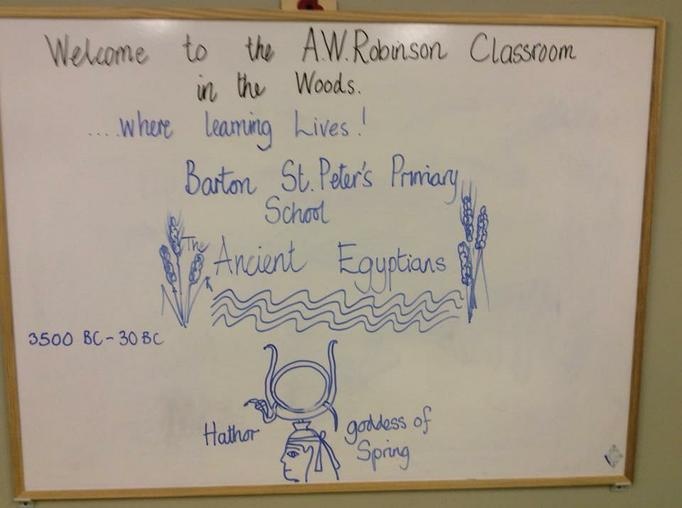 Welcome to the A.W.Robinson Classroom
in the Woods.
....where learning Lives!
Barton St.Peter's Primary
School
The
Ancient Egyptians
3500 BC-30 BC
Hathor goddess of
Spring